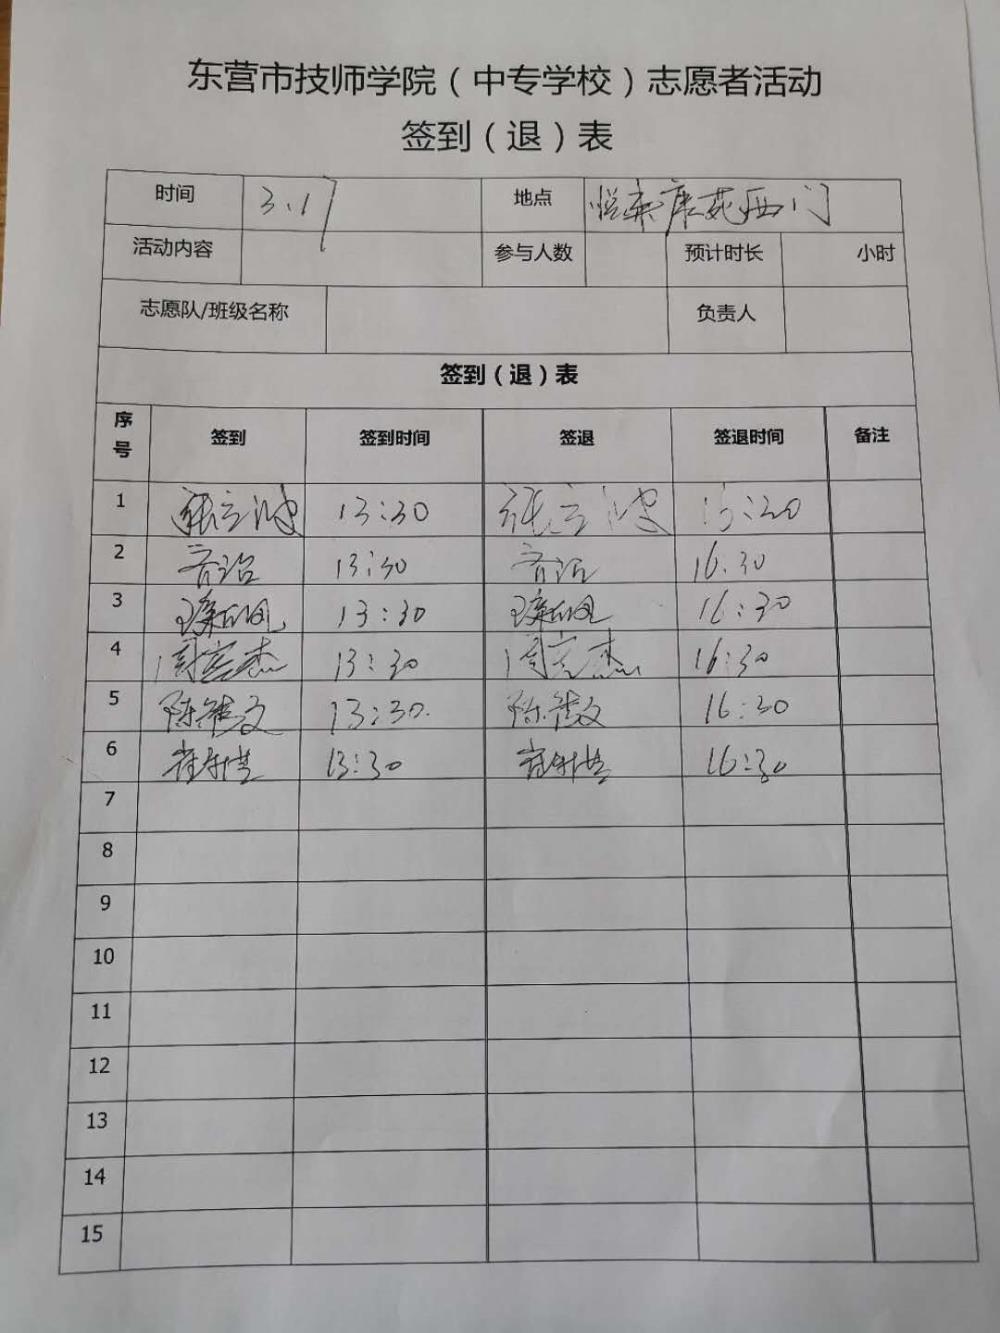 东营市技师学院（中专学校）志愿者活动
签到（退）表
时间 3.17 地点 悦来康苑西门
活动内容 参与人数 预计时长 小时
志愿队/班级名称 负责人
签到（退）表
序号 签到 签到时间 签退 签退时间 备注
1 张立波 13:30 张立波
2 13:30 16:30
3 13:30 16:30
4 13:30 16:30
5 13:30. 16:30
6 13:30 16:30
7
8
9
10
11
12
13
14
15